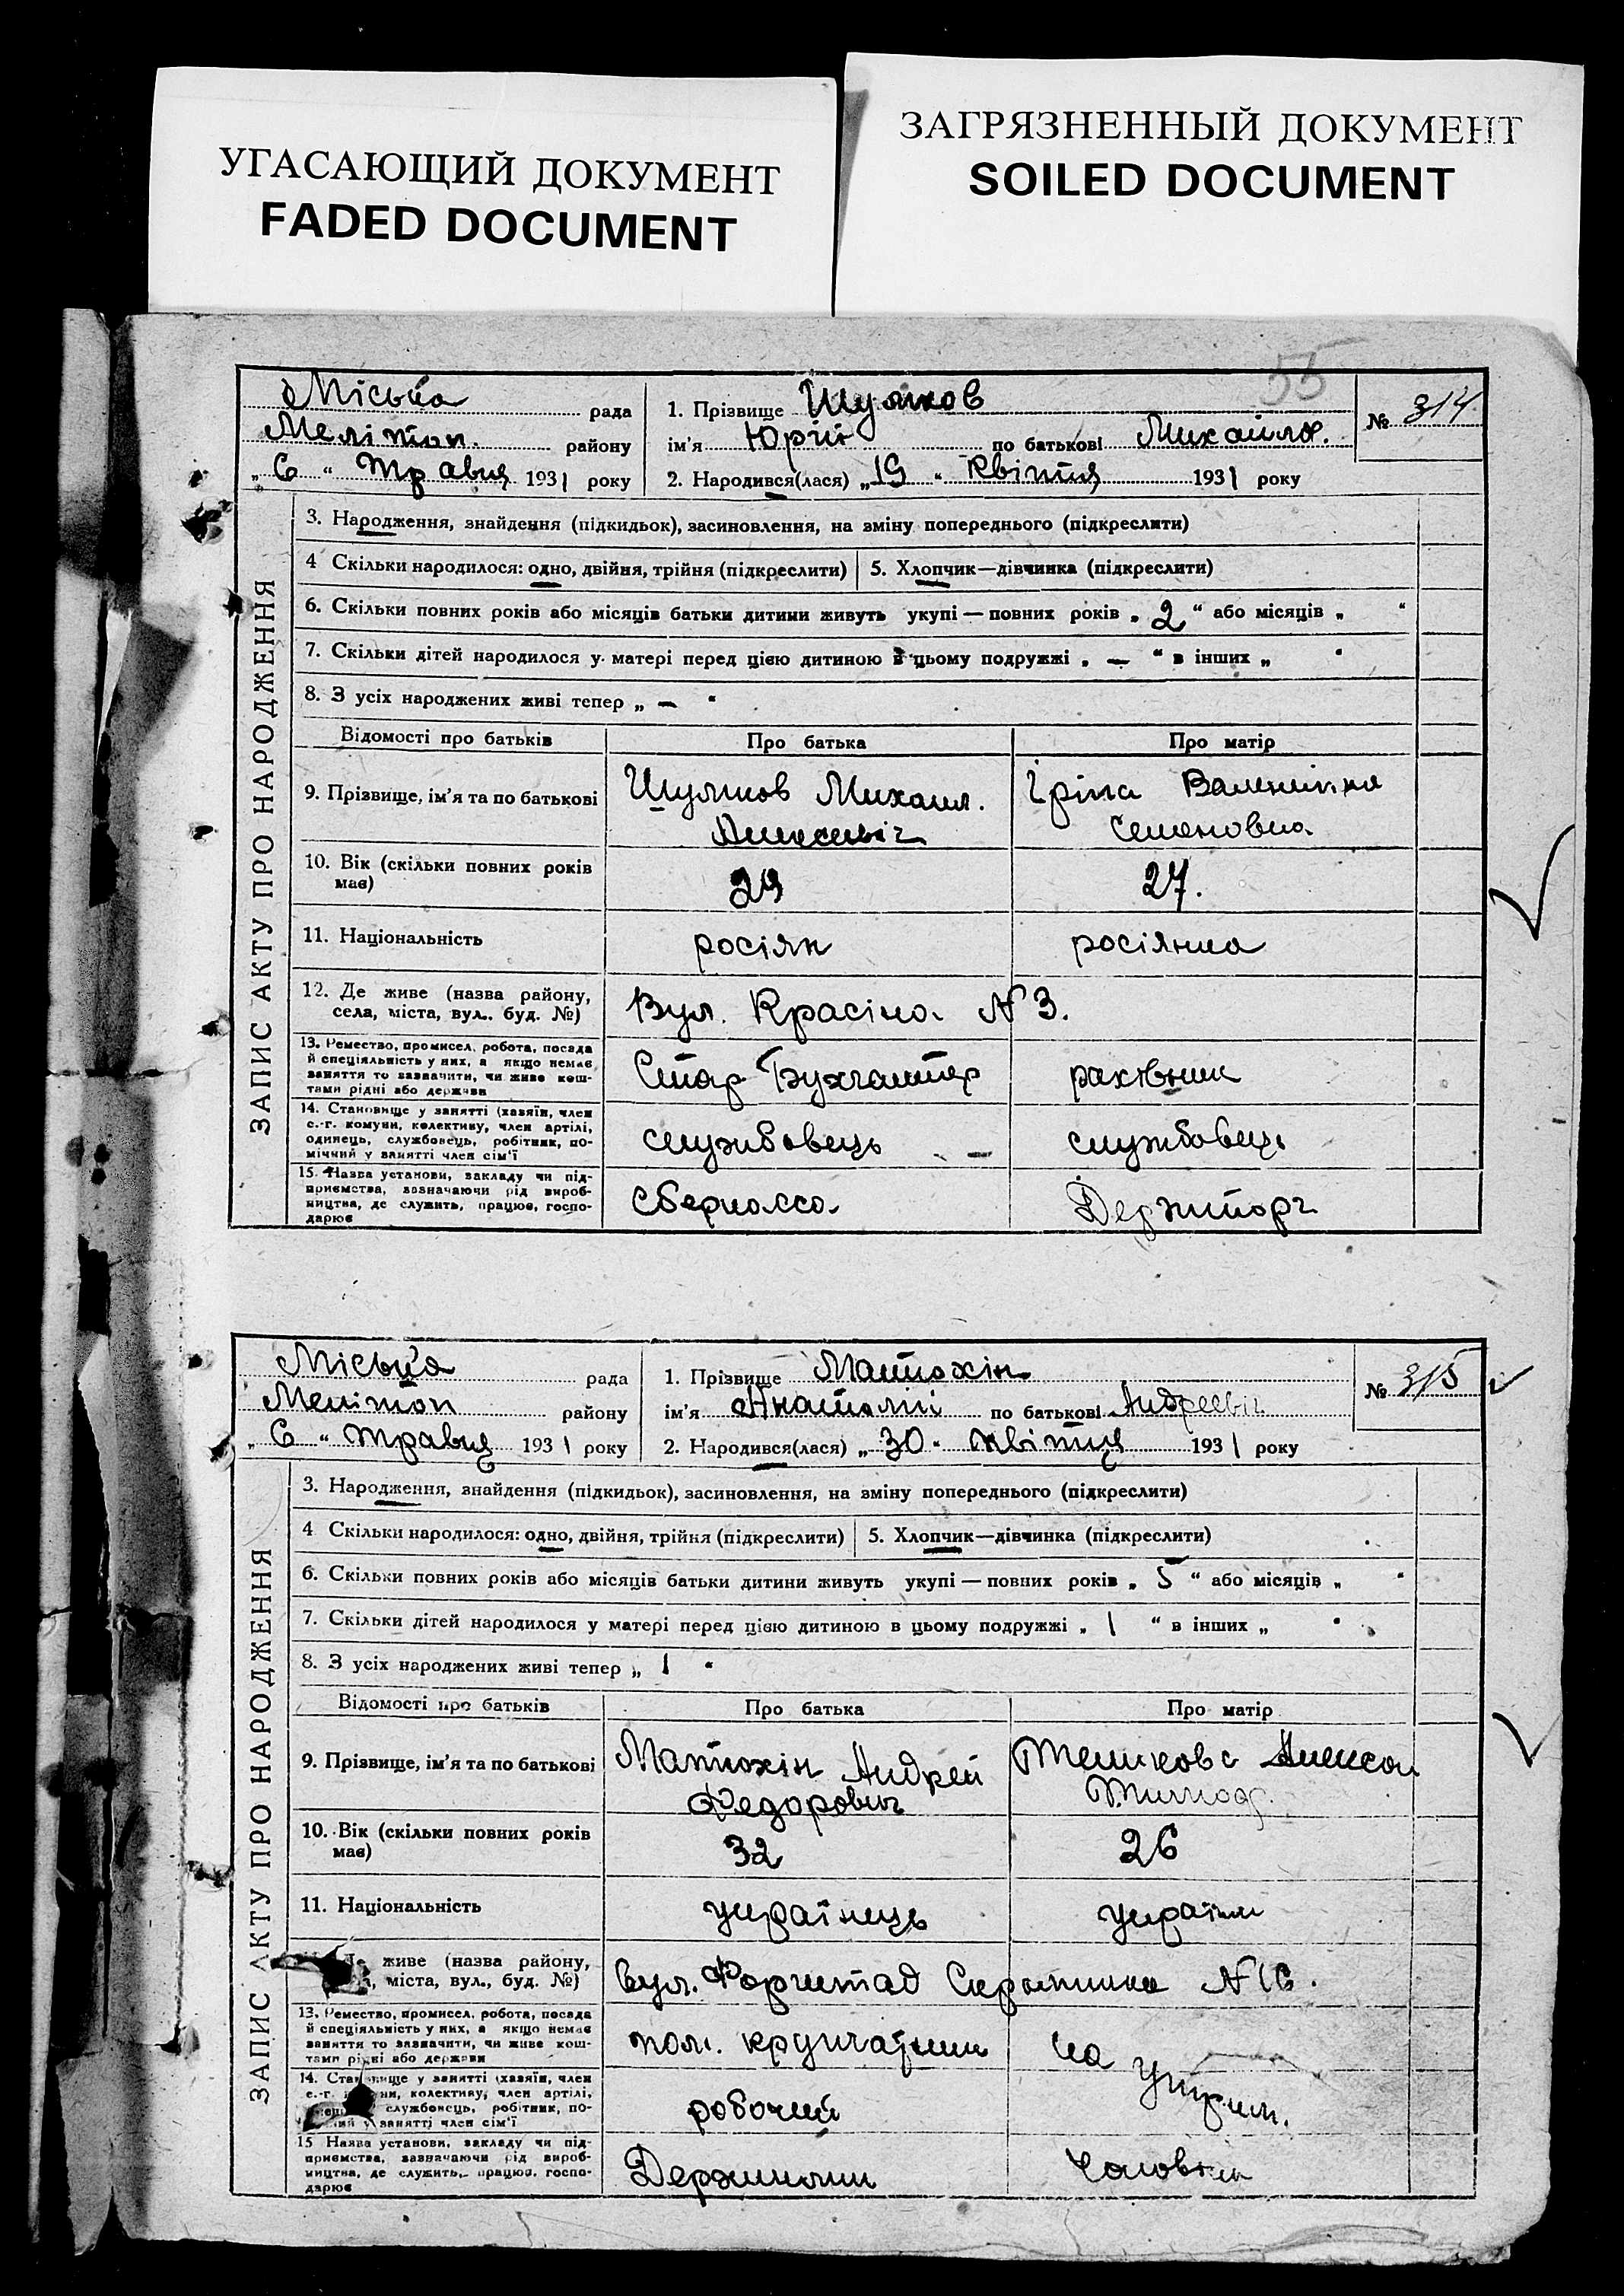 УГАСАЮЩИЙ ДОКУМЕНТ
FADED DOCUMENT
ЗАГРЯЗНЕННЫЙ ДОКУМЕНТ
SOILED DOCUMENT
55
Міська рада
Мелітоп. району
„ 6 “ Травня 1931 року
1. Прізвище
ім'я Юрій по батькові Михайлов.
2. Народився(лася) „ 19 “ Квітня 1931 року
№ 314
ЗАПИС АКТУ ПРО НАРОДЖЕННЯ
3. Народження, знайдення (підкидьок), засиновлення, на зміну попереднього (підкреслити)
4 Скільки народилося: одно, двійня, трійня (підкреслити) 5. Хлопчик—дівчинка (підкреслити)
6. Скільки повних років або місяців батьки дитини живуть укупі — повних років „ 2 “ або місяців „ “
7. Скільки дітей народилося у матері перед цією дитиною в цьому подружжі „ — “ в інших „ “
8. З усіх народжених живі тепер „ — “
Відомості про батьків Про батька Про матір
9. Прізвище, ім'я та по батькові Михаил. Іріна Валентина
Семеновна
10. Вік (скільки повних років має) 29 27.
11. Національність росіян росіянка
12. Де живе (назва району, села, міста, вул., буд. №) Вул. Красіна N 3.
13. Ремество, промисел, робота, посада й спеціяльність у них, а якщо немає заняття то зазначити, чи живе коштами рідні або держави Стар Бухгалтер рахівник
14. Становище у занятті (хазяїн, член с.-г. комуни, колективу, член артілі, одинець, службовець, робітник, помічний у занятті член сім'ї службовець — службовець
15. Назва установи, закладу чи підприємства, зазначаючи рід виробництва, де служить, працює, господарює Сберкасса. Держторг
Міська рада
Мелітоп району
„ 6 “ травня 1931 року
1. Прізвище Матюхін
ім'я Анатолій по батькові Андреевіч
2. Народився(лася) „ 30 “ квітня 1931 року
№ 315
ЗАПИС АКТУ ПРО НАРОДЖЕННЯ
3. Народження, знайдення (підкидьок), засиновлення, на зміну попереднього (підкреслити)
4 Скільки народилося: одно, двійня, трійня (підкреслити) 5. Хлопчик—дівчинка (підкреслити)
6. Скільки повних років або місяців батьки дитини живуть укупі — повних років „ 5 “ або місяців „ “
7. Скільки дітей народилося у матері перед цією дитиною в цьому подружжі „ 1 “ в інших „ “
8. З усіх народжених живі тепер „ 1 “
Відомості про батьків Про батька Про матір
9. Прізвище, ім'я та по батькові Матюхін Андрей
Федорович
10. Вік (скільки повних років має) 32 26
11. Національність українець українк
живе (назва району, міста, вул., буд. №) вул. Форштад N 16.
13. Ремество, промисел, робота, посада й спеціяльність у них, а якщо немає заняття то зазначити, чи живе коштами рідні або держави на утрим.
14. Становище у занятті (хазяїн, член с.-г. комуни, колективу, член артілі, службовець, робітник, помічний у занятті член сім'ї робочий
15 Назва установи, закладу чи підприємства, зазначаючи рід виробництва, де служить, працює, господарює Держмлин